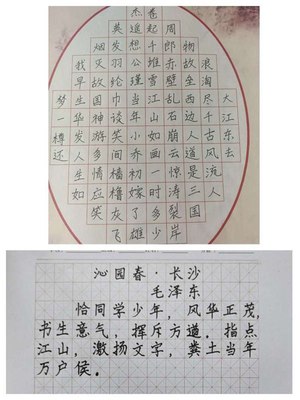 大江东去
浪淘尽千古风流人
物故垒西边人道是三国
周郎赤壁乱石崩云惊涛裂岸
卷起千堆雪江山如画一时多少
杰遥想公瑾当年小乔初嫁了雄
英发羽纶巾谈笑间樯橹灰飞
烟灭故国神游多情应笑
我早生华发人生如
梦一樽还
沁园春·长沙
毛泽东
恰同学少年，风华正茂，
书生意气，挥斥方遒。指点
江山，激扬文字，粪土当年
万户侯。